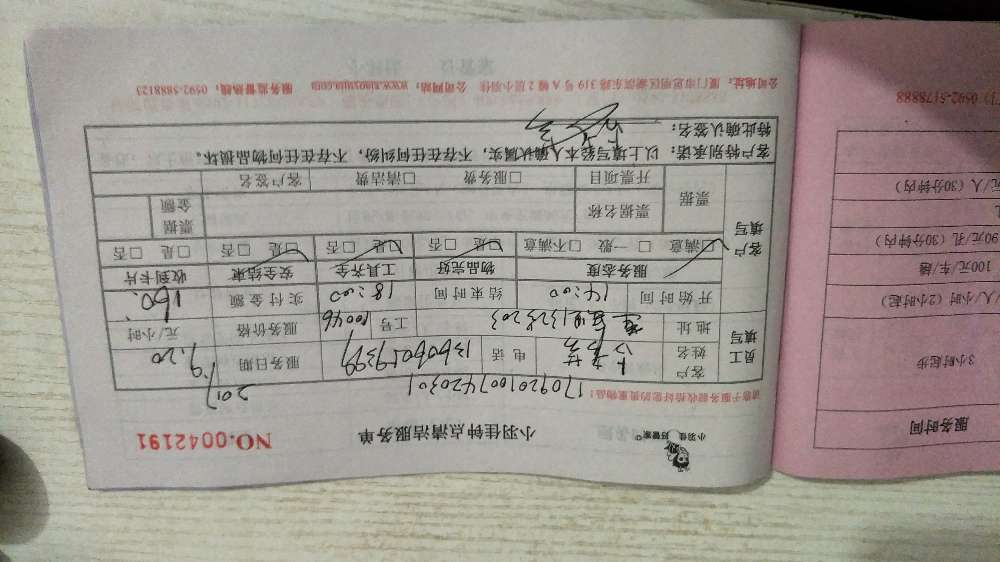 小羽佳 好管家
小羽佳钟点清洁服务单
NO.0042191
请您于服务前收拾好您的贵重物品！
1709201007420301
2017
员工填写
客户姓名
电话 13606059399
服务日期 9.20
地址
工号 10046
服务价格 元/小时
开始时间 14:00
结束时间 18:00
实付金额 160.
客户填写
服务态度 物品完好 工具齐全 安全结束 收到卡片
☑满意 □一般 □不满意 ☑是 □否 ☑是 □否 ☑是 □否 □是 □否
票据
票据名称
票据金额
开票项目 □服务费 □清洁费
客户签名
客户特别承诺：以上填写经本人确认属实，不存在任何纠纷，不存在任何物品损坏。
特此确认签名：
公司地址：厦门市思明区湖滨东路319号A幢2层小羽佳 公司网站：www.xiaoyujia.com 服务监督热线：0592-5888123
服务时间
3小时起步
人/小时（2小时起）
100元/车/趟
90元/孔（30分钟内）
元/人（30分钟内）
0592-5178888